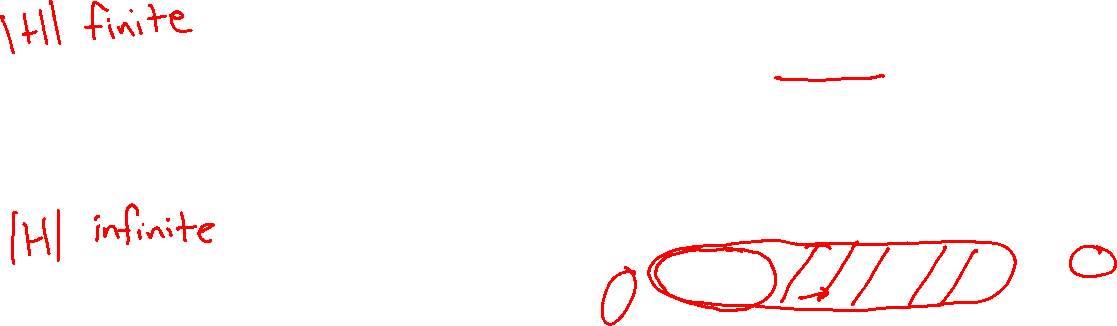 |H| finite
|H| infinite